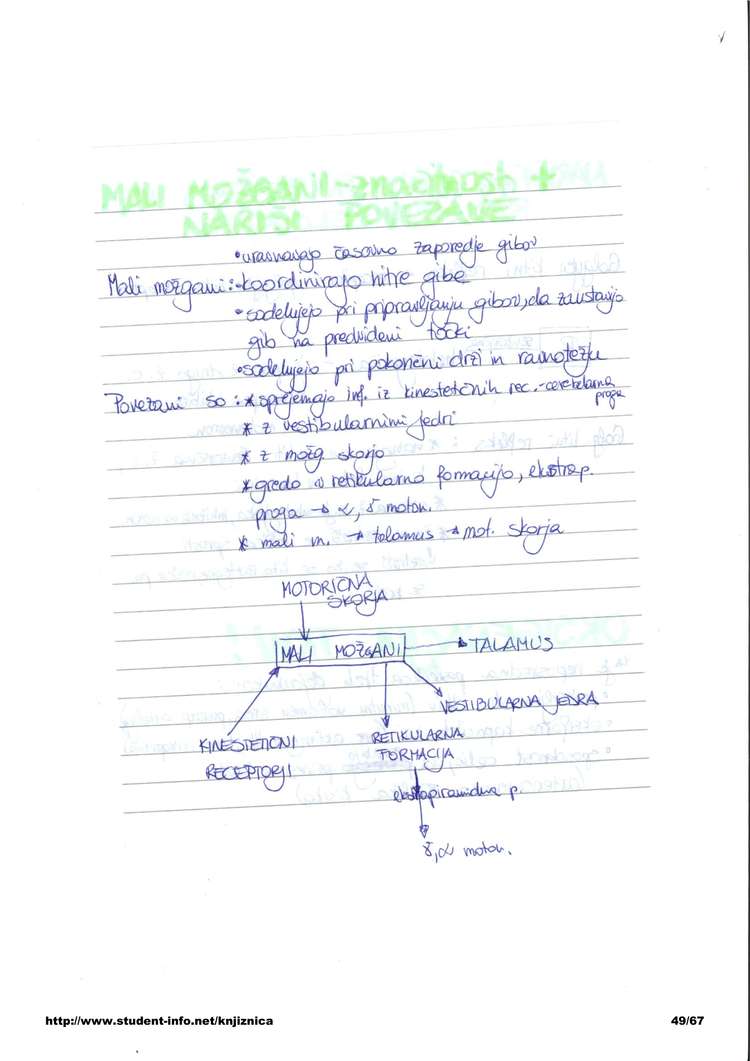 MALI MOŽGANI - značilnosti +
NARIŠI POVEZAVE
• uravnavajo časovno zaporedje gibov
Mali možgani: • koordinirajo hitre gibe
• sodelujejo pri pripravljanju gibov, da zaustavijo
gib na predvideni točki
• sodelujejo pri pokončni drži in ravnotežju
Povezani so: * sprejemajo inf. iz kinestetičnih rec. - cerebelarna
proga
* z vestibularnimi jedri
* z možg skorjo
* gredo v retikularno formacijo, ekstrap.
proga → α, γ moton.
* mali m. → talamus → mot. skorja
MOTORIČNA
SKORJA
MALI MOŽGANI → TALAMUS
VESTIBULARNA JEDRA
KINESTETIČNI
RECEPTORJI
RETIKULARNA
FORMACIJA
ekstrapiramidna p.
γ, α moton.
http://www.student-info.net/knjiznica
49/67